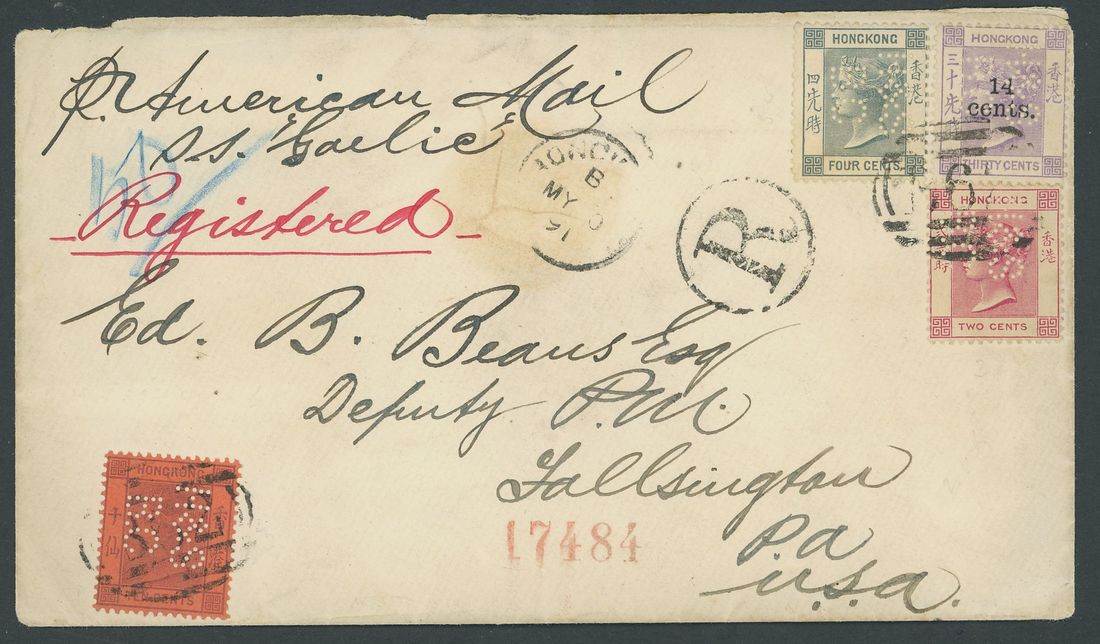 pr American Mail
ss. Gaelic
Registered
Ed. B. Beans Esq
Deputy P.M.
Fallsington
Pa
U.S.A.
17484
R
B
MY
91
HONGKONG
四先時
香港
FOUR CENTS.
HONGKONG
香港
14
cents.
THIRTY CENTS
HONGKONG
香港
TWO CENTS
HONGKONG
香港
CENTS